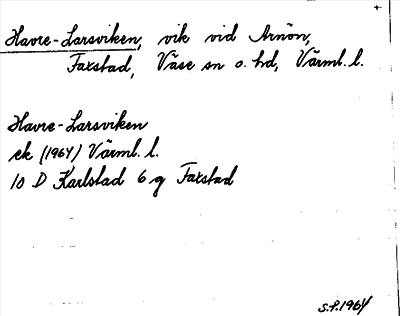 Havre-Larsviken, vik vid Arnön,
Faxstad, Väse sn o. hd, Värml. l.
Havre-Larsviken
ek (1964) Värml. l.
10 D Karlstad 6 g Faxstad
S.F. 1964